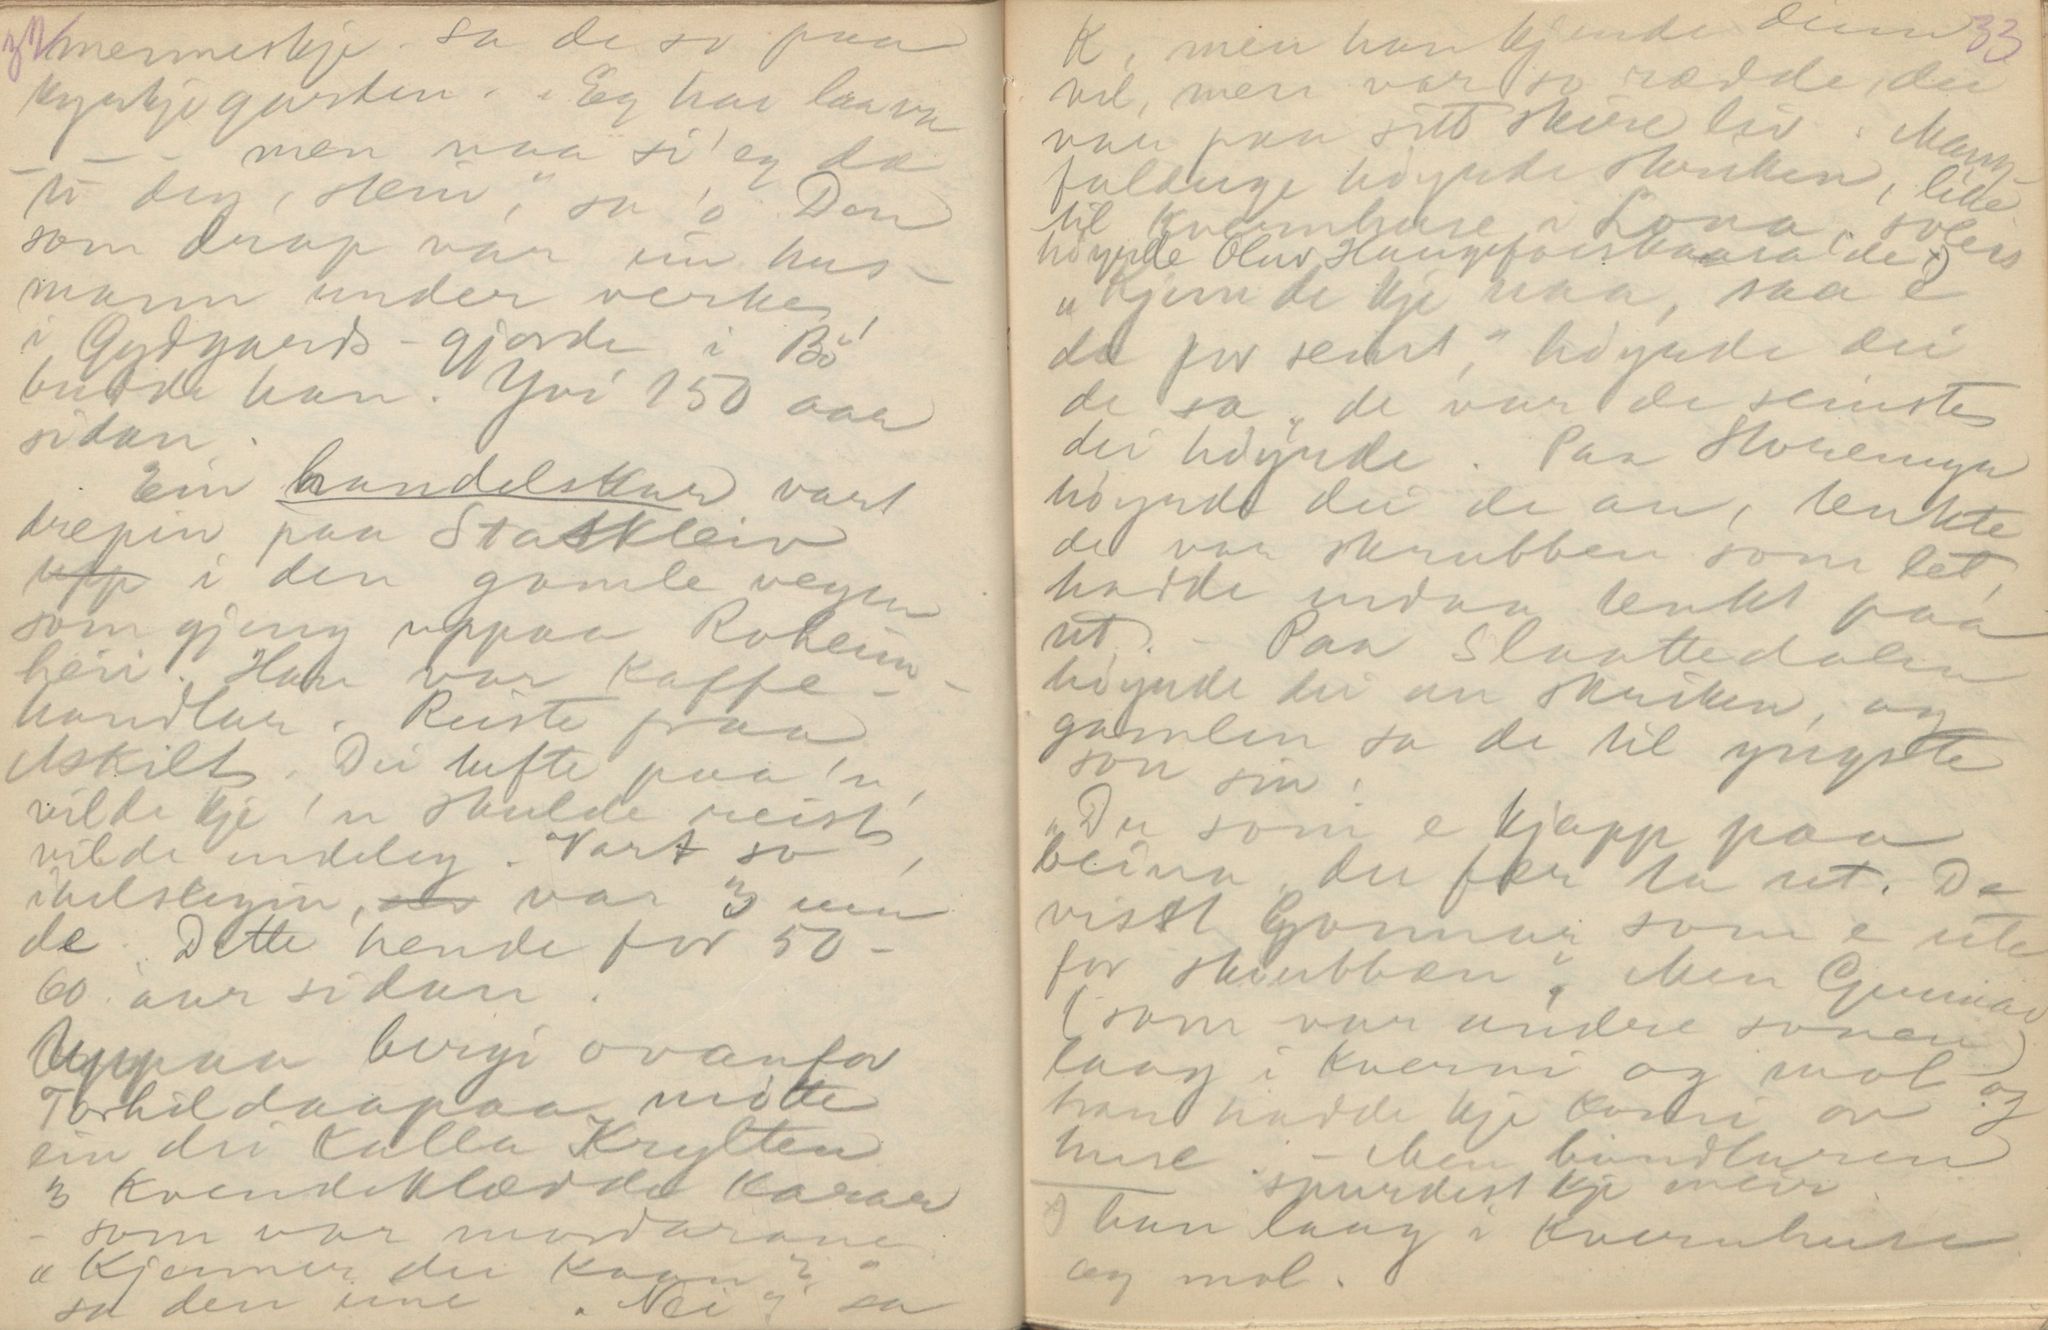 32
menneskje - sa de so paa
kyrkjegarden. "Eg hae laava
- - - men naa si' eg da
ti deg, stein", sa 'o. Den
som drap var ein hus-
mann under verke,
i Gydgards-gjorde i Bö'
budde han. Yvi 150 aar
sidan.
Ein handelskar vart
drepin paa Staskleiv
upp i den gamle vegen
som gjeng uppaa Roheim-
heii. Han var kaffe-
handlar. Reiste paa
Askilt. Dei tufte paa 'n,
vilde kje 'n skulde reist,
vilde endeleg. Vart so
ihelslegin, var 3 um
de. Dette hende for 50-
60 aar sidan.
Uppaa bergi ovanfor
Torhildaapaa mötte
ein dei kalla Krylten
3 kvendeklædde karar
- som var mordarane.
"Kjenner du kaan?"
sa den eine. "Nei", sa
33
K, men han kjende deim
vel, men var so rædde, dei
var paa sitt skire liv. Mang-
foldige höyrde skriken, like
til Kvernhuse i Lona, soleis
höyrde Oluv Haugefossbaara de x)
"Kjem de kje naa, saa e
de for seint," höyrde dei
de sa, de var de seinste
dei höyrde. Paa Storemyr
höyrde dei de au, tenkte
de var skrubben som let,
hadde endaa tenkt paa
ut. - Paa Slaattedalen
höyrde dei au skriken, og
gamlen sa de til yngste
son sin:
"Du som e kjapp paa
beina, du fær ta ut. De
visst Gunnar som e ute
for skrubben". Men Gunnar
(som var andre sonen)
laag i kverni og mol og
han hadde kje komi or
huse. - Men handlaren
spurdest kje meir.
x) han laag i Kvernhuse
og mol.